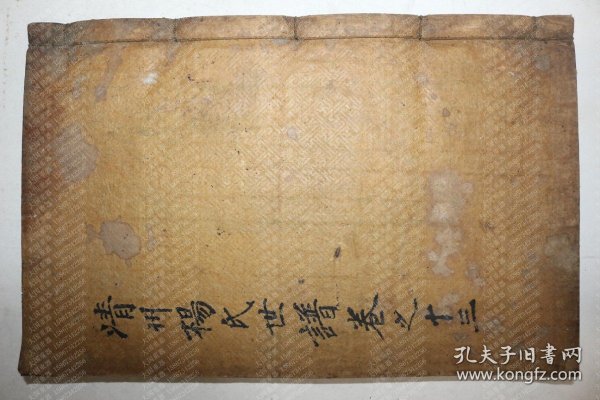 清州楊氏世譜卷之十三
孔夫子旧书网
www.kongfz.com